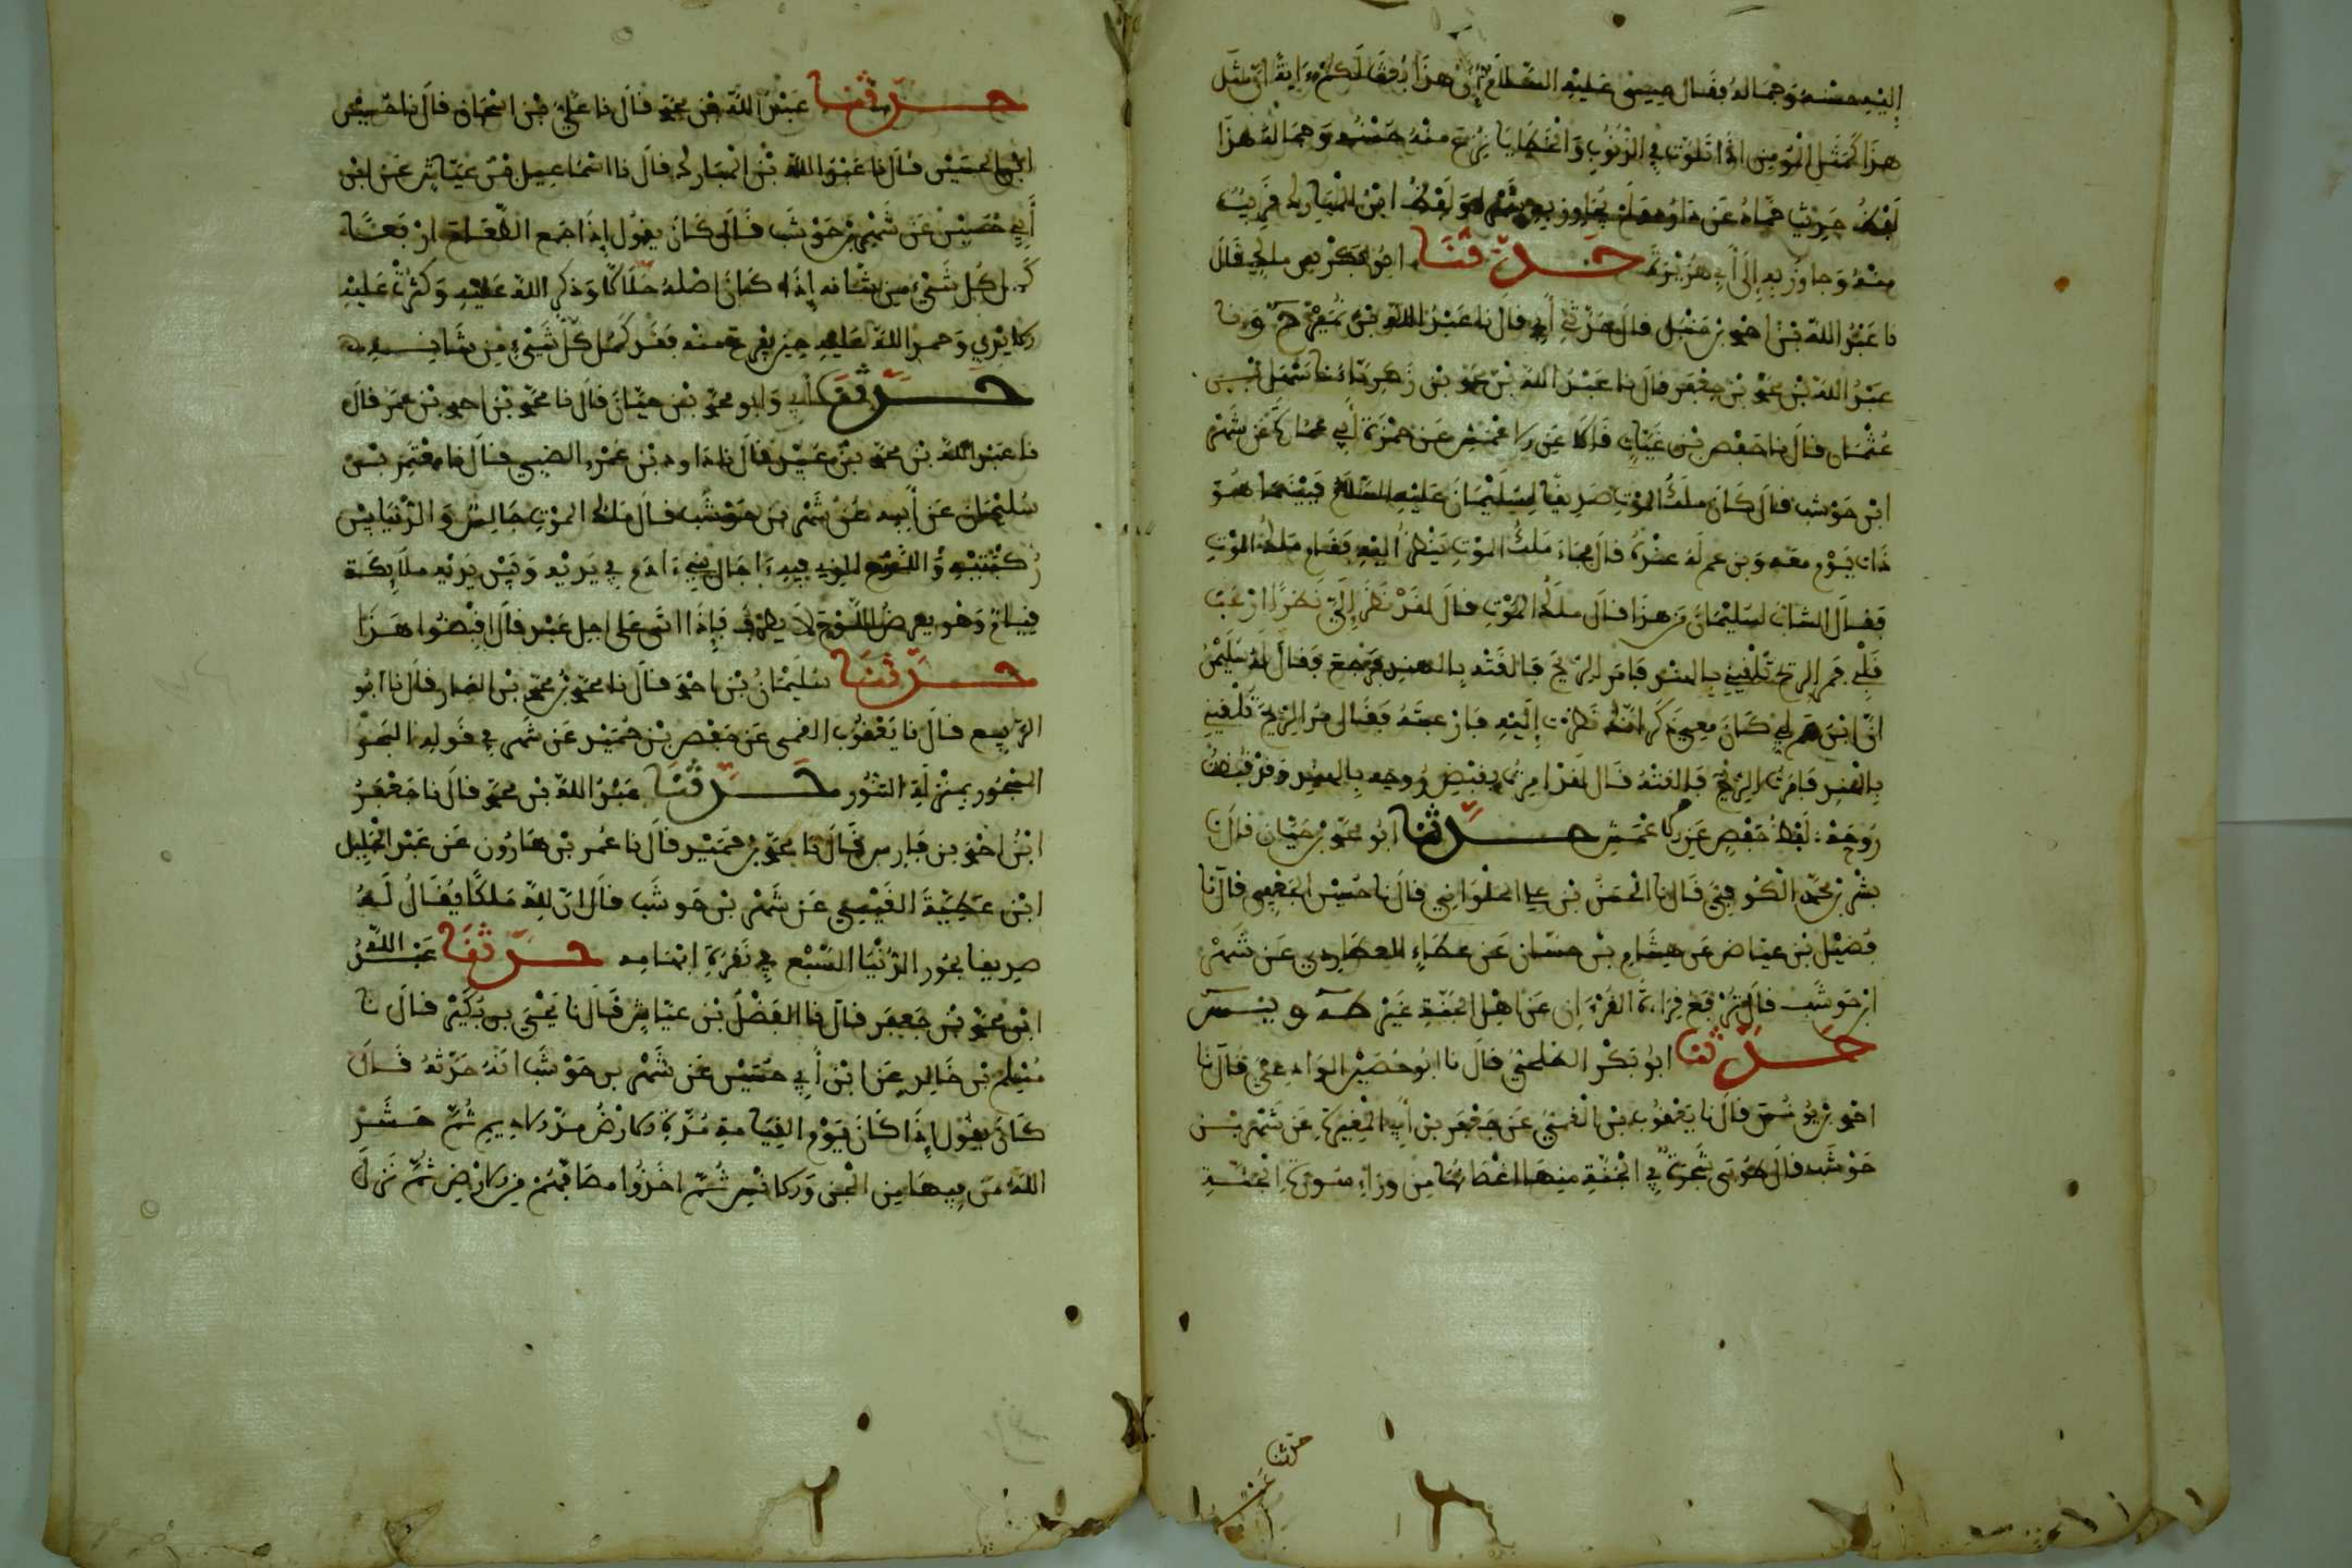 إليه حسنه وجماله فقال عيسى عليه السلام إن هذا بعث لكم آية إن مثل
هذا كمثل المؤمن إذا تلوث في الذنوب والخطايا نزع منه حسنه وجماله هذا
لفظ حديث حماد عن داود ولم يجاوز به شهرا ولفظ ابن المبارك قريب
منه وجاوز به إلى أبي هريرة حدثنا أبو بكر بن ملك قال
نا عبد الله بن احمد بن حنبل قال حدثني أبي قال نا عبد الله بن نمير ح ونا
عبد الله بن محمد بن جعفر قال نا عبد الله بن محمد بن زكرياء نا سهل بن
عثمان قال نا حفص بن غياث قالا عن الاعمش عن حمزة أبي عمارة عن شهر
ابن حوشب قال كان ملك الموت صديقا لسليمان عليه السلام فبينما هو
ذات يوم معه وبن عم له عنده قال فجاء ملك الموت ينظر إليه فقام ملك الموت
فقال الشاب لسليمان من هذا قال ملك الموت قال لقد نظر إلي نظرا ارعب
قلبي فمر الريح تلقيني بالهند فامر الريح فالقته بالهند فرجع فقال له سليمن
ان ابن عم لي كان معي ذكر انك نظرت إليه فارعبته فقال مر الريح تلقيني
بالهند فامرت الريح فالقته قال لقد امرت بقبض روحه بالهند وقد قبضت
روحه لفظ حفص عن الاعمش حدثنا ابو محمد بن حيان قال نا
بشر بن محمد الكوفي قال نا الحسن بن علي الحلواني قال نا حسين الجعفي قال نا
فضيل بن عياض عن هشام بن حسان عن عطاء العطاردي عن شهر
ابن حوشب قال ترفع قراءة القرءان عن اهل الجنة غير طه ويس
حدثنا ابو بكر الطلحي قال نا ابو حصين الوادعي قال نا
احمد بن يونس قال نا يعقوب بن القمي عن جعفر بن أبي المغيرة عن شهر بن
حوشب قال طوبى شجرة في الجنة منها اغصانها من وراء سورة الجنة
حدثنا عبد
حدثنا عبد الله بن محمد قال نا علي بن اسحاق قال نا حسين
ابن الحسين قال نا عبد الله بن المبارك قال نا اسماعيل بن عياش عن ابن
أبي حسين عن شهر بن حوشب قال كان يقول إذا جمع الطعام اربعة
كمل كل شيء من شانه إذا كان اصله حلالا وذكر الله عليه وكثرت عليه
الايدي وحمد الله عليه حين يفرغ منه فقد كمل كل شيء من شانه
حدثنا أبي وابو محمد بن حيان قال نا محمد بن احمد بن عمر قال
نا عبد الله بن محمد بن عبيد قال نا داود بن عمرو الضبي قال نا معتمر بن
سليمان عن أبيه عن شهر بن حوشب قال ملك الموت جالس والدنيا بين
ركبتيه واللوح الذي فيه اجال بني ءادم في يديه وبين يديه ملائكة
قيام وهو يعرض اللوح لا يطرف فإذا اتى على اجل عبد قال اقبضوا هذا
حدثنا سليمان بن احمد قال نا محمد بن محمد بن التمار قال نا ابو
الربيع قال نا يعقوب القمي عن حفص بن حميد عن شهر في قوله البحر
المسجور بمنزلة التنور حدثنا عبد الله بن محمد قال نا جعفر
ابن احمد بن فارس قال نا محمد بن حميد قال نا عمر بن هارون عن عبد الجليل
ابن عطية القيسي عن شهر بن حوشب قال ان لله ملكا يقال له
صديقا بحور الدنيا السبع في نقرة ابهامه حدثنا عبد الله
ابن محمد بن جعفر قال نا الفضل بن عياش قال نا يحيى بن بكير قال نا
مسلم بن خالد عن ابن أبي حسين عن شهر بن حوشب انه حدثه قال
كان يقول إذا كان يوم القيامة مدت الارض مد الاديم ثم حشر
الله من فيها من الجن والانس ثم اخذوا مصافهم من الارض ثم نزل